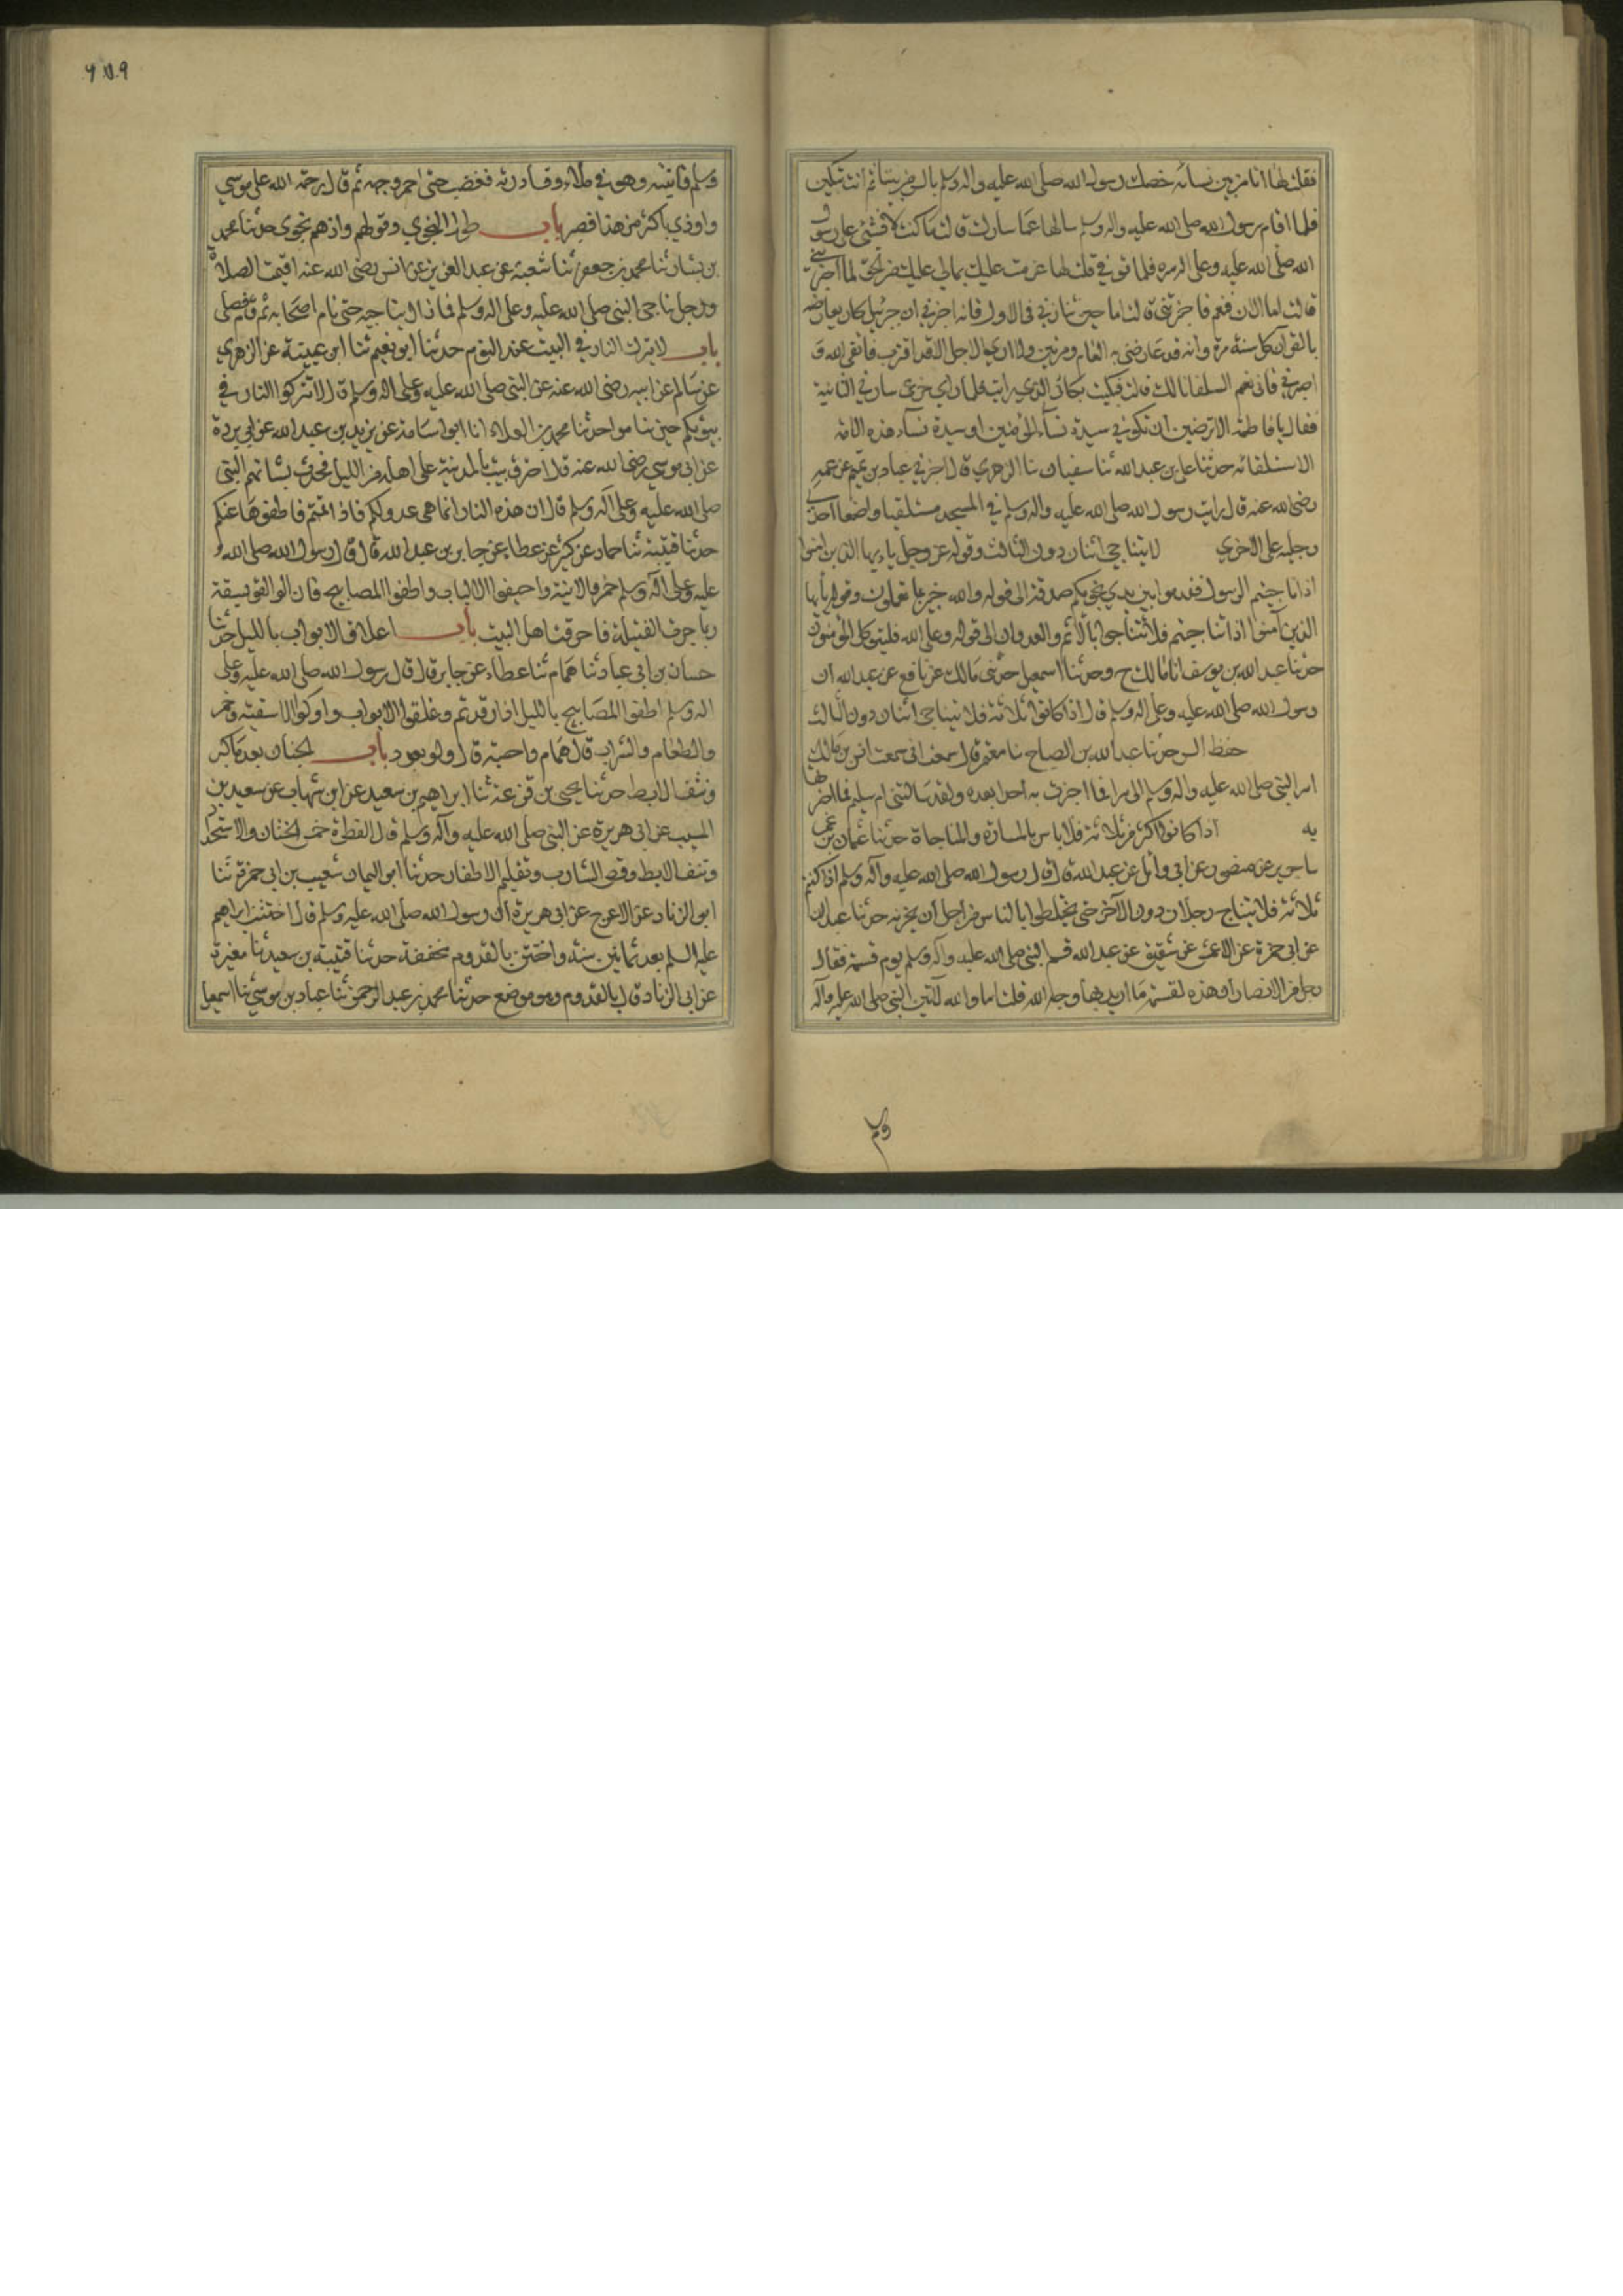 فقلت لها انا من بين نسائه خصك رسول الله صلى الله عليه واله وسلم بالسر من بيننا ثم انت تبكين
فلما قام رسول الله صلى الله عليه واله وسلم سالتها عما سارك قالت ما كنت لافشي على رسول
الله صلى الله عليه وعلى اله سره فلما توفي قلت لها عزمت عليك بمالي عليك من الحق لما اخبرتني
قالت اما الان فنعم فاخبرتني قالت اما حين سارني في الاول فانه اخبرني ان جبرئيل كان يعارضه
بالقرآن كل سنة مرة وانه قد عارضني به العام مرتين ولا اري الاجل الا قد اقترب فاتقي الله و
اصبري فاني نعم السلف انا لك قالت فبكيت بكائي الذي رايت فلما راي جزعي سارني الثانية
فقال يا فاطمة الا ترضين ان تكوني سيدة نساء المؤمنين او سيدة نساء هذه الامة
الاستلقاء حدثنا علي بن عبد الله ثنا سفيان نا الزهري قال اخبرني عباد بن تميم عن عمه
رضي الله عنه قال رايت رسول الله صلى الله عليه واله وسلم في المسجد مستلقيا واضعا احدى
رجليه على الاخري لا يتناجي اثنان دون الثالث وقوله عز وجل يا ايها الذين امنوا
اذا ناجيتم الرسول فقدموا بين يدي نجويكم صدقة الى قوله والله خبير بما تعملون وقوله يا ايها
الذين آمنوا اذا تناجيتم فلا تتناجوا بالاثم والعدوان الى قوله وعلى الله فليتوكل المؤمنون
حدثنا عبد الله بن يوسف انا مالك ح وحدثنا اسمعيل حدثني مالك عن نافع عن عبد الله ان
رسول الله صلى الله عليه وعلى اله وسلم قال اذا كانوا ثلاثة فلا يتناجي اثنان دون الثالث
حفظ السر حدثنا عبد الله بن الصباح نا معتمر قال سمعت ابي سمعت انس بن مالك
اسر النبي صلى الله عليه واله وسلم الي سرا فما اخبرت به احدا بعده ولقد سالتني ام سليم فما اخبرتها
به اذا كانوا اكثر من ثلاثة فلا باس بالمسارة والمناجاة حدثنا عثمان بن
نا جرير عن منصور عن ابي وائل عن عبد الله قال قال رسول الله صلى الله عليه وآله وسلم اذا كنتم
ثلاثة فلا يتناج رجلان دون الآخر حتى يختلطوا بالناس من اجل ان يحزنه حدثنا عبدان
عن ابي حمزة عن الاعمش عن شقيق عن عبد الله قسم النبي صلى الله عليه وآله وسلم يوم قسمة فقال
رجل من الانصار ان هذه لقسمة ما اريد بها وجه الله قلت اما والله لآتين النبي صلى الله عليه وآله
وسلم
٦٧٠٩
وسلم فاتيته وهو في ملاء وقساررته فغضب حتى احمر وجهه ثم قال رحمة الله على موسي
واوذي باكثر من هذا فصبر باب طول النجوي وقولهم واذ هم نجوى حدثنا محمد
بن بشار ثنا محمد بن جعفر ثنا شعبة عن عبد العزيز عن انس رضي الله عنه اقيمت الصلاة
ورجل يناجي النبي صلى الله عليه وعلى اله وسلم فما زال يناجيه حتى نام اصحابه ثم قام فصلى
باب لا يترك النار في البيت عند النوم حدثنا ابو نعيم ثنا ابن عيينة عن الزهري
عن سالم عن ابيه رضي الله عنه عن النبي صلى الله عليه وعلى اله وسلم قال لا تتركوا النار في
بيوتكم حين تناموا حدثنا محمد بن العلاء انا ابو اسامة عن بريد بن عبد الله عن ابي بردة
عن ابي موسي رضي الله عنه قال احترق بيت بالمدينة على اهله من الليل فحدث بشانهم النبي
صلى الله عليه وعلى آله وسلم قال ان هذه النار انما هي عدو لكم فاذا نمتم فاطفوها عنكم
حدثنا قتيبة ثنا حماد عن كثير عن عطاء عن جابر بن عبد الله قال قال رسول الله صلى الله و
عليه وعلى آله وسلم خمروا الانية واجيفوا الابواب واطفوا المصابيح فان الفويسقة
ربما جرت الفتيلة فاحرقت اهل البيت باب اغلاق الابواب بالليل حدثنا
حسان بن ابي عباد ثنا همام ثنا عطاء عن جابر قال قال رسول الله صلى الله عليه وعلى
اله وسلم اطفوا المصابيح بالليل اذا رقدتم وغلقوا الابواب واوكوا الاسقية وخمروا
والطعام والشراب قال همام واحسبه قال ولو بعود باب الختان بعد ما كبر
ونتف الابط حدثنا يحيى بن قزعة ثنا ابراهيم بن سعيد عن ابن شهاب عن سعيد بن
المسيب عن ابي هريرة عن النبي صلى الله عليه وآله وسلم قال الفطرة خمس الختان والاستحداد
ونتف الابط وقص الشارب وتقليم الاظفار حدثنا ابو اليمان شعيب بن ابي حمزة ثنا
ابو الزناد عن الاعرج عن ابي هريرة ان رسول الله صلى الله عليه وسلم قال اختتن ابراهيم
عليه السلم بعد ثمانين سنة واختتن بالقدوم مخففة حدثنا قتيبة بن سعيد ثنا مغيرة
عن ابي الزناد قال بالقدوم وهو موضع حدثنا محمد بن عبد الرحمن ثنا عباد بن موسي ثنا اسمعيل